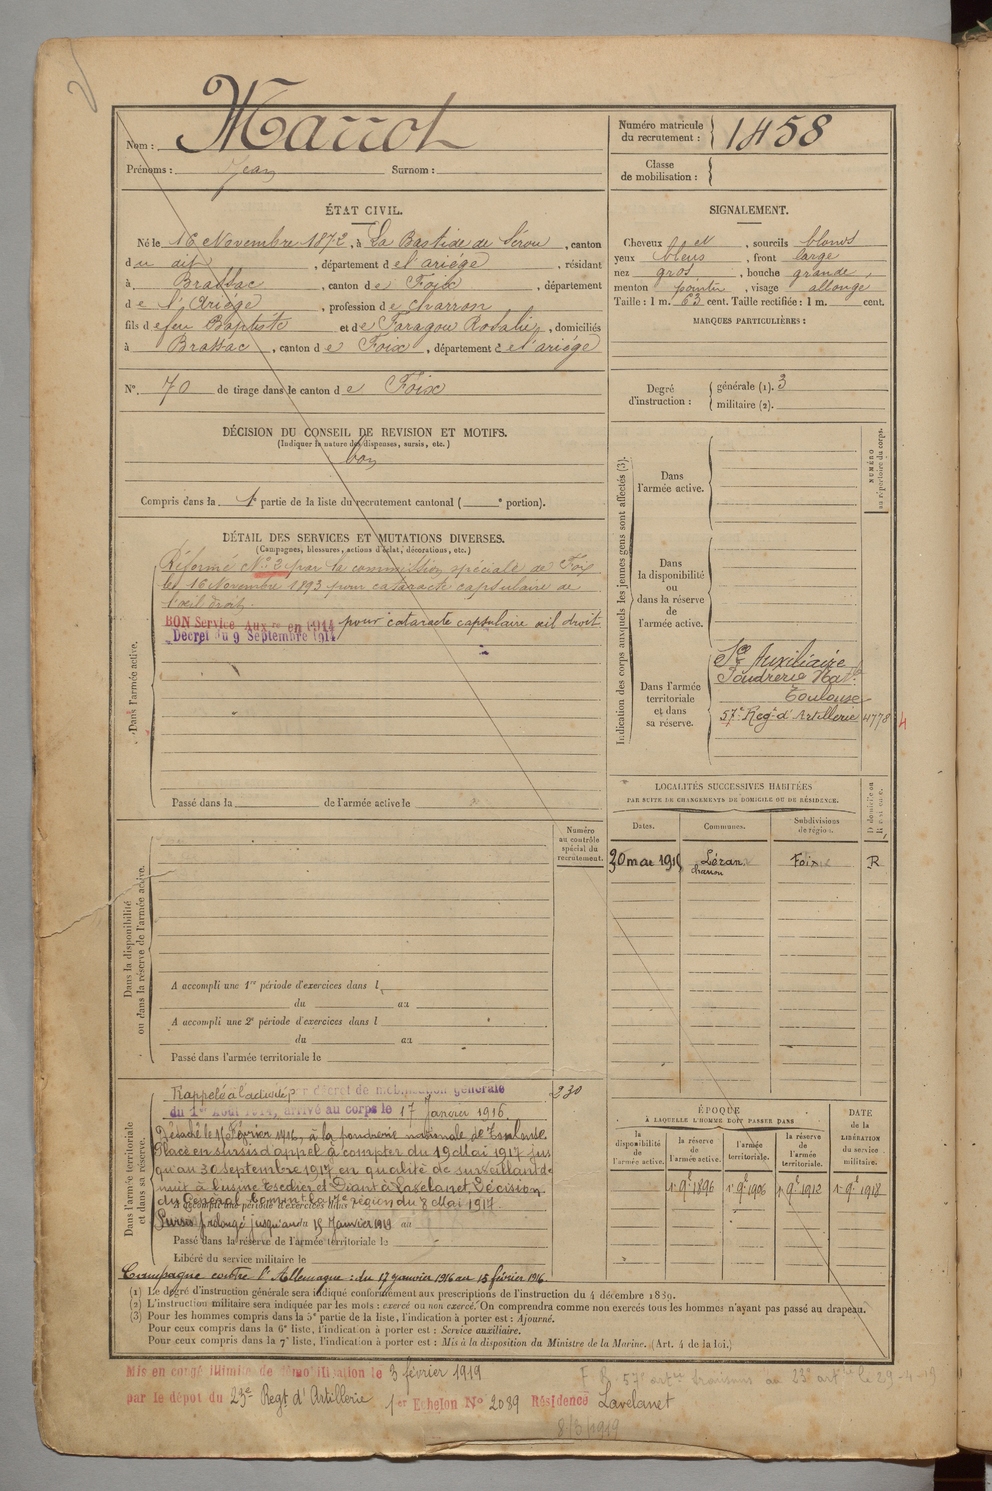 Nom : Marrot
Prénoms : Jean Surnom :
Numéro matricule du recrutement : 1458
Classe de mobilisation :
ÉTAT CIVIL.
Né le 16 Novembre 1872, à La Bastide de Sérou, canton
du dit, département de l'ariége, résidant
à Brassac, canton de Foix, département
de l'Ariége, profession de charron
fils de feu Baptiste et de Faragou Rosalie, domiciliés
à Brassac, canton de Foix, département de l'ariége
N° 70 de tirage dans le canton de Foix
SIGNALEMENT.
Cheveux et, sourcils blonds
yeux bleus, front large
nez gros, bouche grande,
menton pointu, visage allongé
Taille : 1 m. 63 cent. Taille rectifiée : 1 m. cent.
MARQUES PARTICULIÈRES :
Degré d'instruction : générale (1). 3
militaire (2).
DÉCISION DU CONSEIL DE REVISION ET MOTIFS.
(Indiquer la nature des dispenses, sursis, etc.)
bon
Compris dans la 1e partie de la liste du recrutement cantonal ( e portion).
DÉTAIL DES SERVICES ET MUTATIONS DIVERSES.
(Campagnes, blessures, actions d'éclat, décorations, etc.)
Dans l'armée active.
Réformé N° 2 par la commission spéciale de Foix
le 16 Novembre 1893 pour cataracte capsulaire de
l'œil droit
BON Service Auxre en 1914 pour cataracte capsulaire œil droit
Décret du 9 Septembre 1914
Passé dans la de l'armée active le
Indication des corps auxquels les jeunes gens sont affectés (3).
NUMÉRO au répertoire du corps.
Dans l'armée active.
Dans la disponibilité ou dans la réserve de l'armée active.
Dans l'armée territoriale et dans sa réserve.
Sce Auxiliaire
Poudrerie Natle
Toulouse
57e Regt d'Artillerie 4778
4
LOCALITÉS SUCCESSIVES HABITÉES
PAR SUITE DE CHANGEMENTS DE DOMICILE OU DE RÉSIDENCE.
Dates. Communes. Subdivisions de région. D domicile ou R résidence.
30 mai 1915 Léran Foix R
charron
Numéro au contrôle spécial du recrutement.
Dans la disponibilité ou dans la réserve de l'armée active.
A accompli une 1re période d'exercices dans l
du au
A accompli une 2e période d'exercices dans l
du au
Passé dans l'armée territoriale le
Dans l'armée territoriale et dans sa réserve.
Rappelé à l'activité par décret de mobilisation générale 230
du 1er Août 1914, arrivé au corps le 17 Janvier 1916.
Détaché le 16 Février 1916, à la poudrerie nationale de Toulouse.
Placé en sursis d'appel à compter du 19 Mai 1917 jus
qu'au 30 septembre 1917 en qualité de surveillant de
nuit à l'usine à Lavelanet. Décision
du Général Commt la 17e région du 8 Mai 1917.
A accompli une période d'exercices dans
Sursis prolongé jusqu'au 15 Janvier 1919 au
Passé dans la réserve de l'armée territoriale le
Libéré du service militaire le
Campagne contre l'Allemagne : du 17 janvier 1916 au 15 février 1916.
ÉPOQUE
À LAQUELLE L'HOMME DOIT PASSER DANS
la disponibilité de l'armée active. la réserve de l'armée active. l'armée territoriale. la réserve de l'armée territoriale.
DATE de la LIBÉRATION du service militaire.
1er 9bre 1896 1er 9bre 1906 1er 9bre 1912 1er 9bre 1918
(1) Le degré d'instruction générale sera indiqué conformément aux prescriptions de l'instruction du 4 décembre 1889.
(2) L'instruction militaire sera indiquée par les mots : exercé ou non exercé. On comprendra comme non exercés tous les hommes n'ayant pas passé au drapeau.
(3) Pour les hommes compris dans la 5e partie de la liste, l'indication à porter est : Ajourné.
Pour ceux compris dans la 6e liste, l'indication à porter est : Service auxiliaire.
Pour ceux compris dans la 7e liste, l'indication à porter est : Mis à la disposition du Ministre de la Marine. (Art. 4 de la loi.)
Mis en congé illimité de démobilisation le 3 février 1919
par le dépôt du 23e Regt d'Artillerie 1er Echelon N° 2089 Résidence Lavelanet
57e artie transmis au 23e artie le 29-4-19
8/3/1919